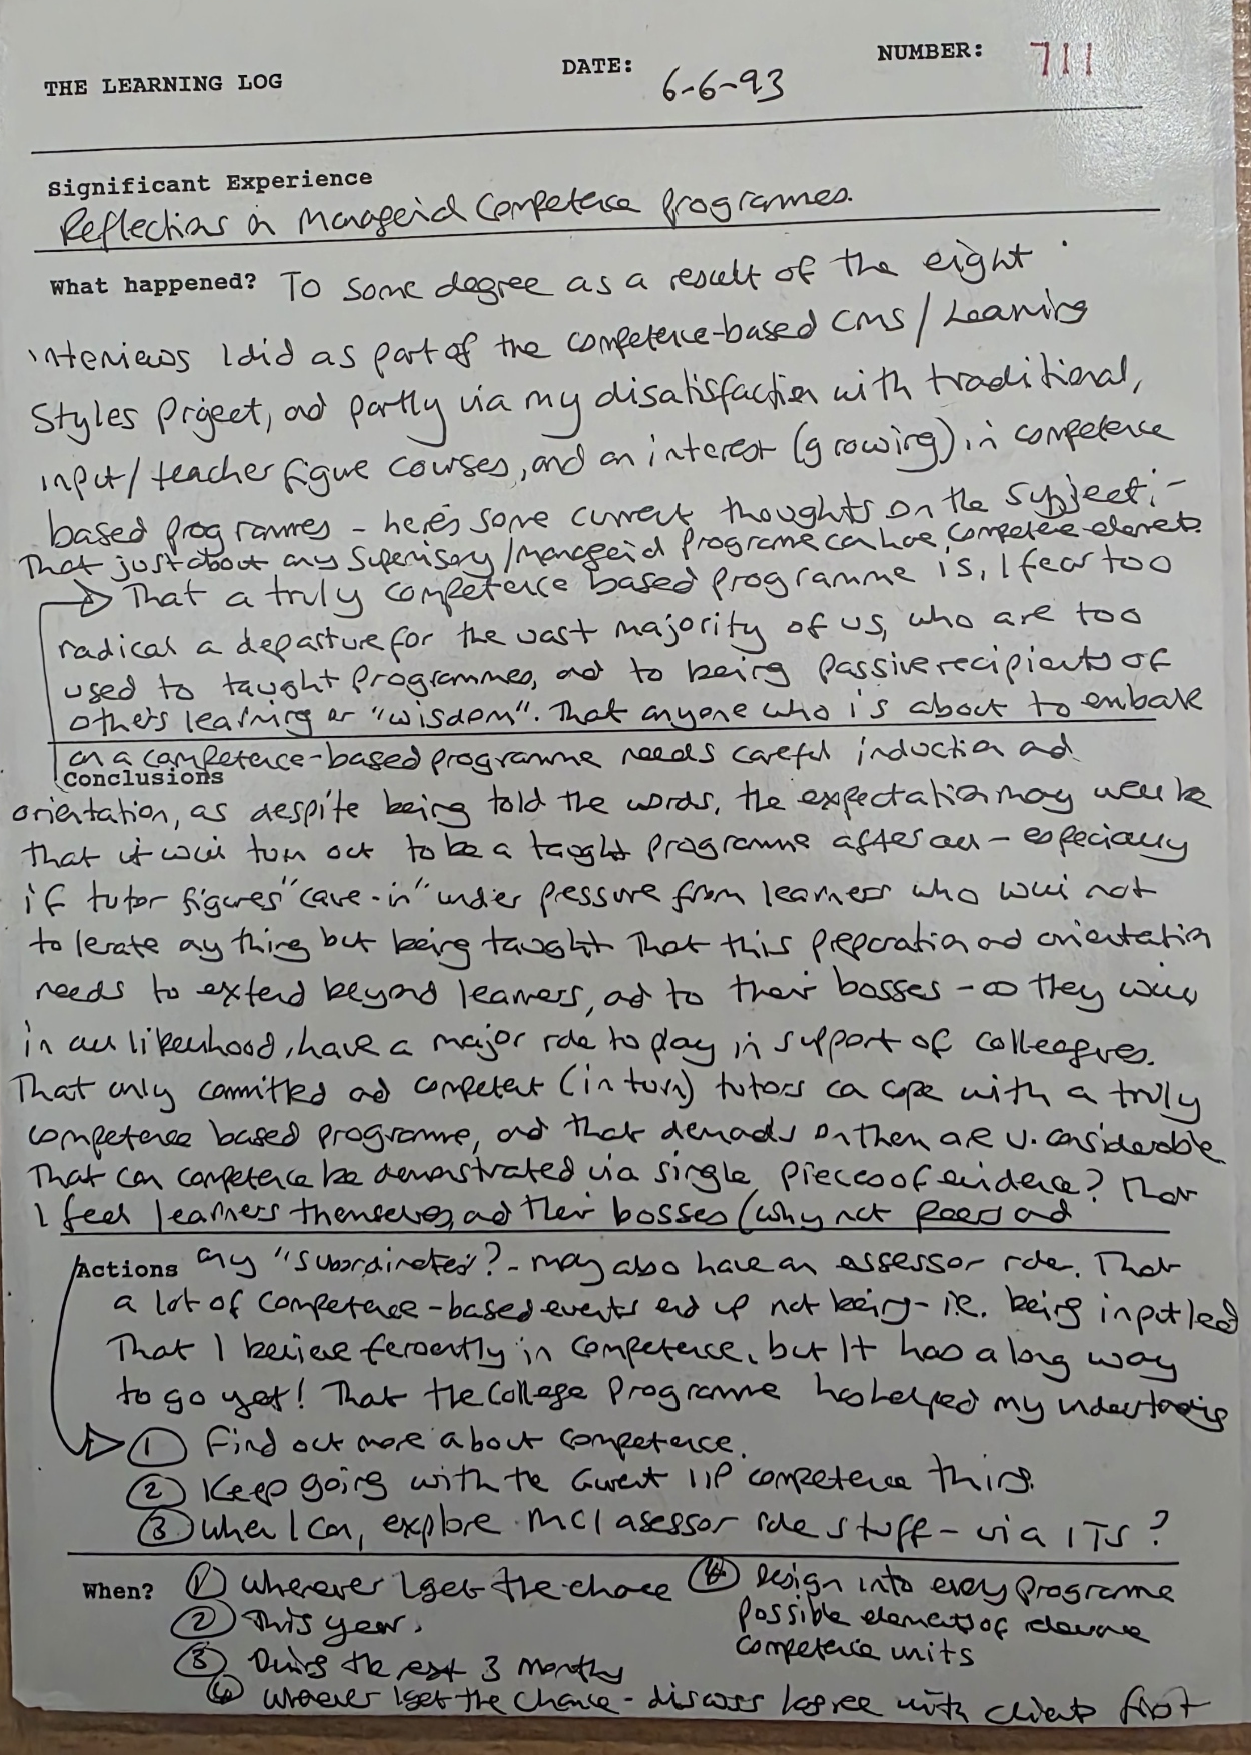 THE LEARNING LOG DATE: 6-6-93 NUMBER: 711
Significant Experience
Reflections on Managerial Competence programmes.
What happened? To some degree as a result of the eight
interviews I did as part of the competence-based CMS/Learning
Styles Project, and partly via my disatisfaction with traditional,
input/teacher figure courses, and an interest (growing) in competence
based programmes - here's some current thoughts on the subject:-
That just about any supervisory/managerial programme can have competence elements.
That a truly competence based programme is, I fear too
radical a departure for the vast majority of us, who are too
used to taught programmes, and to being passive recipients of
others learning or "wisdom". That anyone who is about to embark
on a competence-based programme needs careful induction and
Conclusions
orientation, as despite being told the words, the expectation may well be
that it will turn out to be a taught programme after all - especially
if tutor figures "cave-in" under pressure from learners who will not
tolerate anything but being taught That this preparation and orientation
needs to extend beyond learners, and to their bosses - as they will
in all likelihood, have a major role to play in support of colleagues.
That only committed and competent (in turn) tutors can cope with a truly
competence based programme, and that demands on them are v. considerable
That can competence be demonstrated via single pieces of evidence? That
I feel learners themselves, and their bosses (why not peers and
Actions any "subordinates"? - may also have an assessor role. That
a lot of competence-based events end up not being - i.e. being input led
That I believe fervently in competence, but it has a long way
to go yet! That the College Programme has helped my understanding
① Find out more about competence.
② Keep going with the Gwent IIP competence thing.
③ When I can, explore MCI asessor role stuff - via ITS?
When? ① Wherever I get the chance ④ Design into every programme
② This year. possible elements of relevant
③ During the next 3 months competence units
④ Wherever I get the chance - discuss/agree with clients first